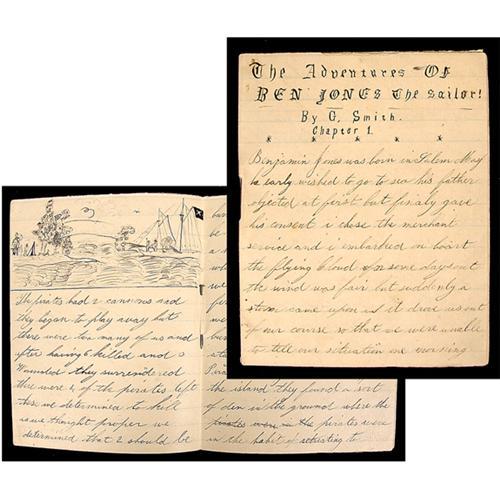 The Adventures Of
BEN JONES The Sailor!
By G. Smith.
Chapter 1.
Benjamin Jones was born in Salem May
he early wished to go to sea his father
objected at first but finaly gave
his consent i chose the merchant
service and i embarked on board
the flying cloud for some days out
the wind was fair but suddenly a
storm came upon us it drove us out
of our course so that we were unable
to tell our situation one morning
The pirates had 2 cannons and
they began to play away but
there were too many of us and
after having 6 killed and 3
wounded they surrendered
there were 4 of the pirates left
these we determined to kill
as we thought proper we
determined that 2 should be
the island they found a sort
of den in the ground where the
pirates were in the pirates were
in the habit of retreating to